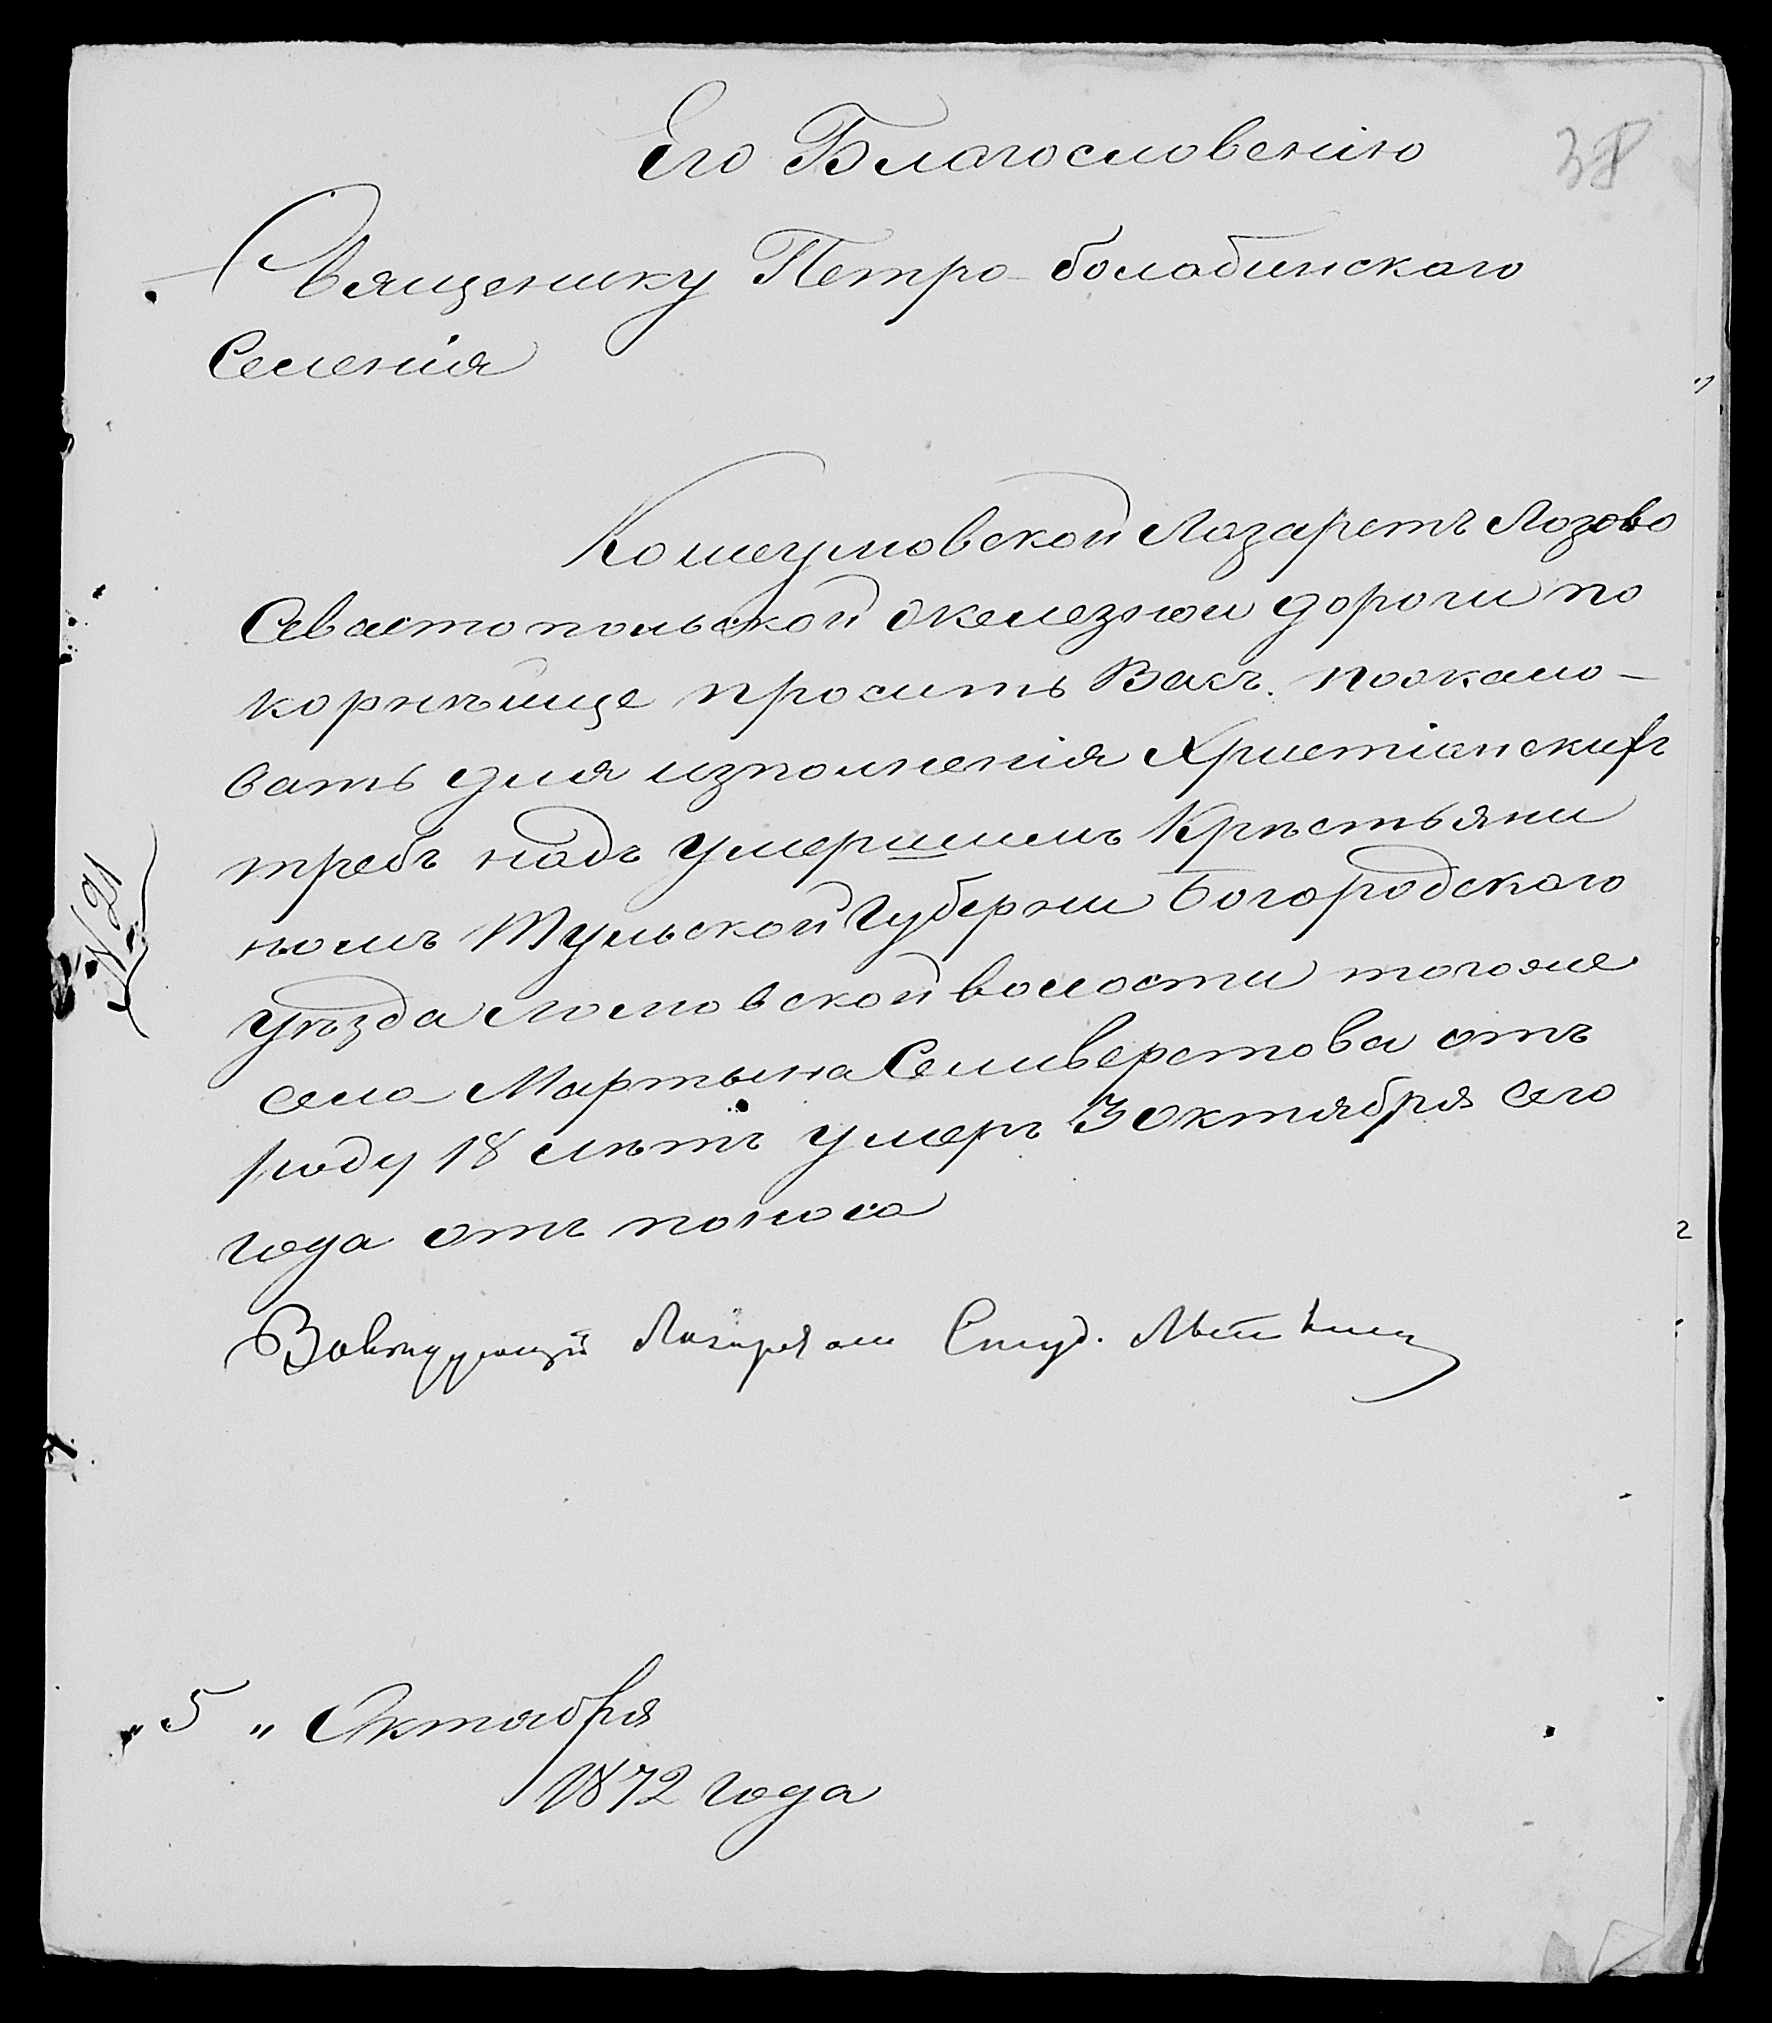 38
Его Благословенію
Священику Петро-болабинскаго
Селенія
Кошеумовской Лазаретъ Лозово
Севастопольской железной дороги по
корнѣйще проситъ Васъ. пожало-
вать для изполненія Христіанскихъ
требъ надъ умершимъ Крѣстьяни
номъ Тульской Губерни Богородского
уѣзда Ломовской волости тогоже
села Мартына Селиверстова отъ
роду 18 лѣтъ умеръ 3 октября сего
года отъ поноса
№ 21
Завѣдующій Лазаретом Студ.
"5" Октября
1872 года